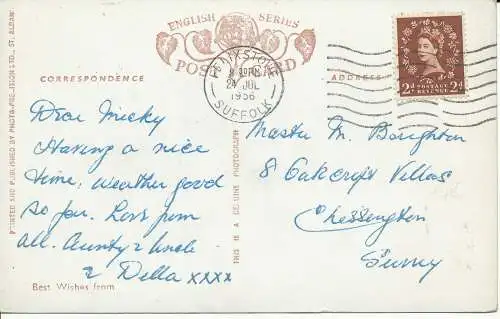 ENGLISH SERIES
POST CARD
CORRESPONDENCE
ADDRESS
FELIXSTOWE
24 JUL
1956
SUFFOLK
POSTAGE REVENUE
2d 2d
Dear Micky
Having a nice
time, weather good
so far. Love from
all. Aunty & Uncle
& Della xxxx
Best Wishes from
Master M. Boughton
8 Oakcroft Villas
Chessington
Surrey
PRINTED AND PUBLISHED BY PHOTO-PRECISION LTD., ST. ALBANS
THIS IS A GENUINE PHOTOGRAPH